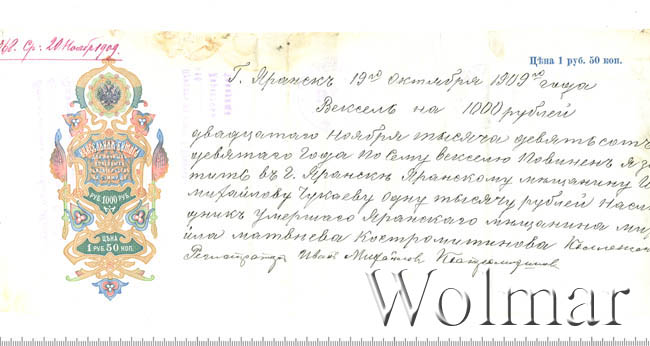 Ср: 20 Ноябр 1909.
Цѣна 1 руб. 50 коп.
Г. Яранскъ 19го Октября 1909го года
Вексель на 1000 рублей
двадцатаго Ноября тысяча девятьсотъ
девятаго Года по сему векселю повиненъ я
тить въ Г. Яранскъ Яранскому мѣщанину
михайлову Чукаеву одну тысячу рублей Насл
никъ Умершаго Яранскаго мѣщанина ми
йла матвѣева Костромитинова Коллежс
Регистраторъ Иванъ Михайловъ Костромитинов
ВЕКСЕЛЬНАЯ БУМАГА
РУБ. 1000 РУБ.
ЦѢНА
1 РУБ. 50 КОП.
Wolmar